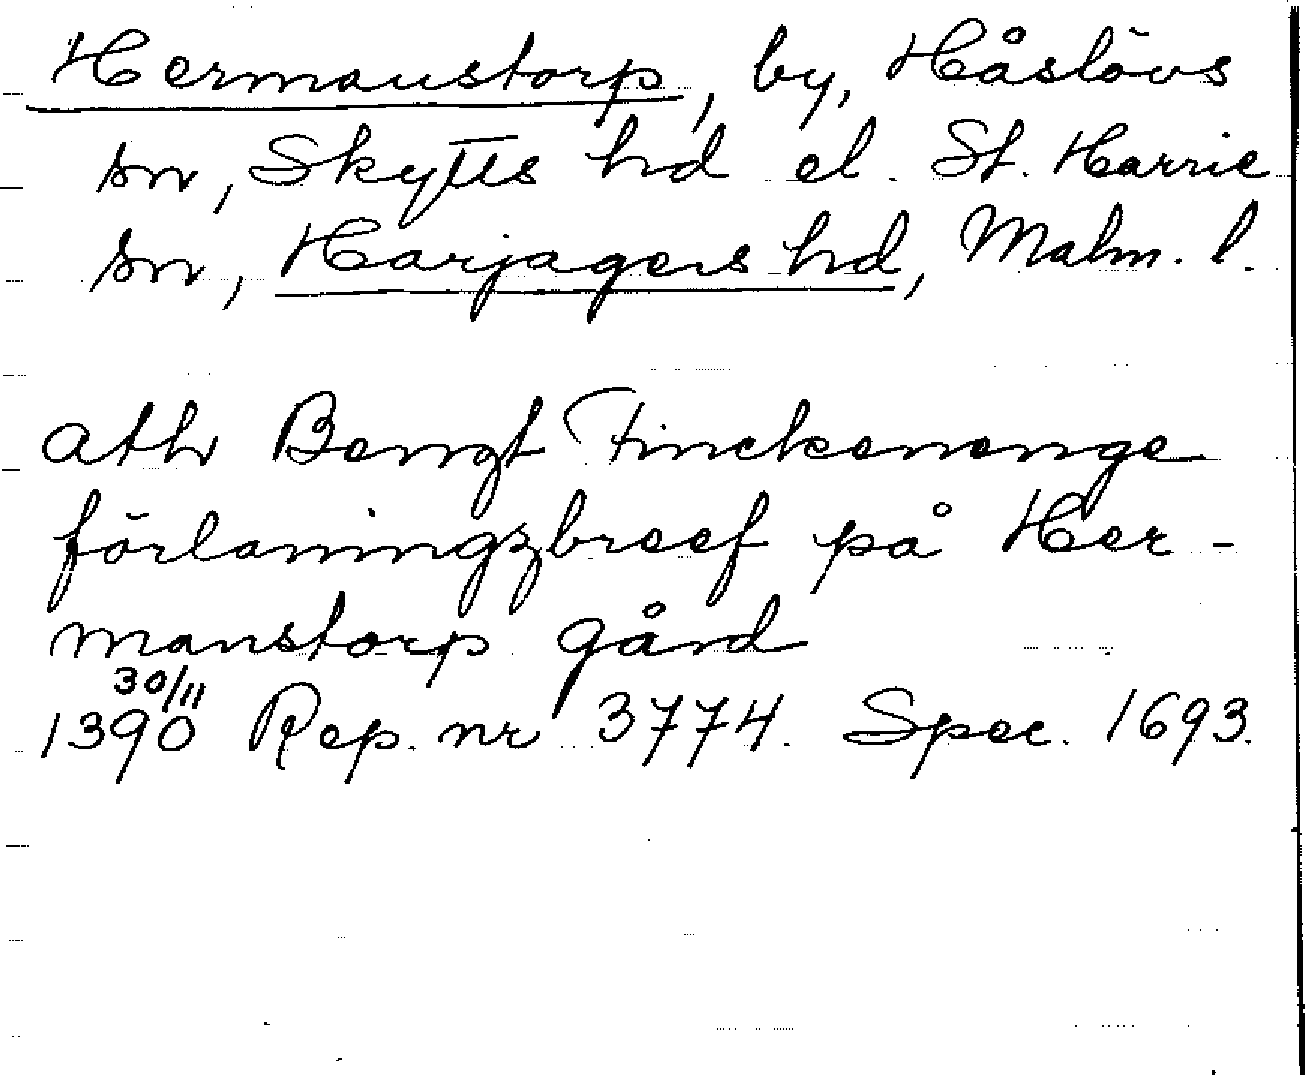 Hermanstorp, by, Håslövs
sn, Skytts hd el. St. Harrie
sn, Harjagers hd, Malm. l.
ath Bengt Finckenenge
förlaningzbreef på Her-
manstorp gård
30/11
1390 Rep. nr 3774. Spec. 1693.